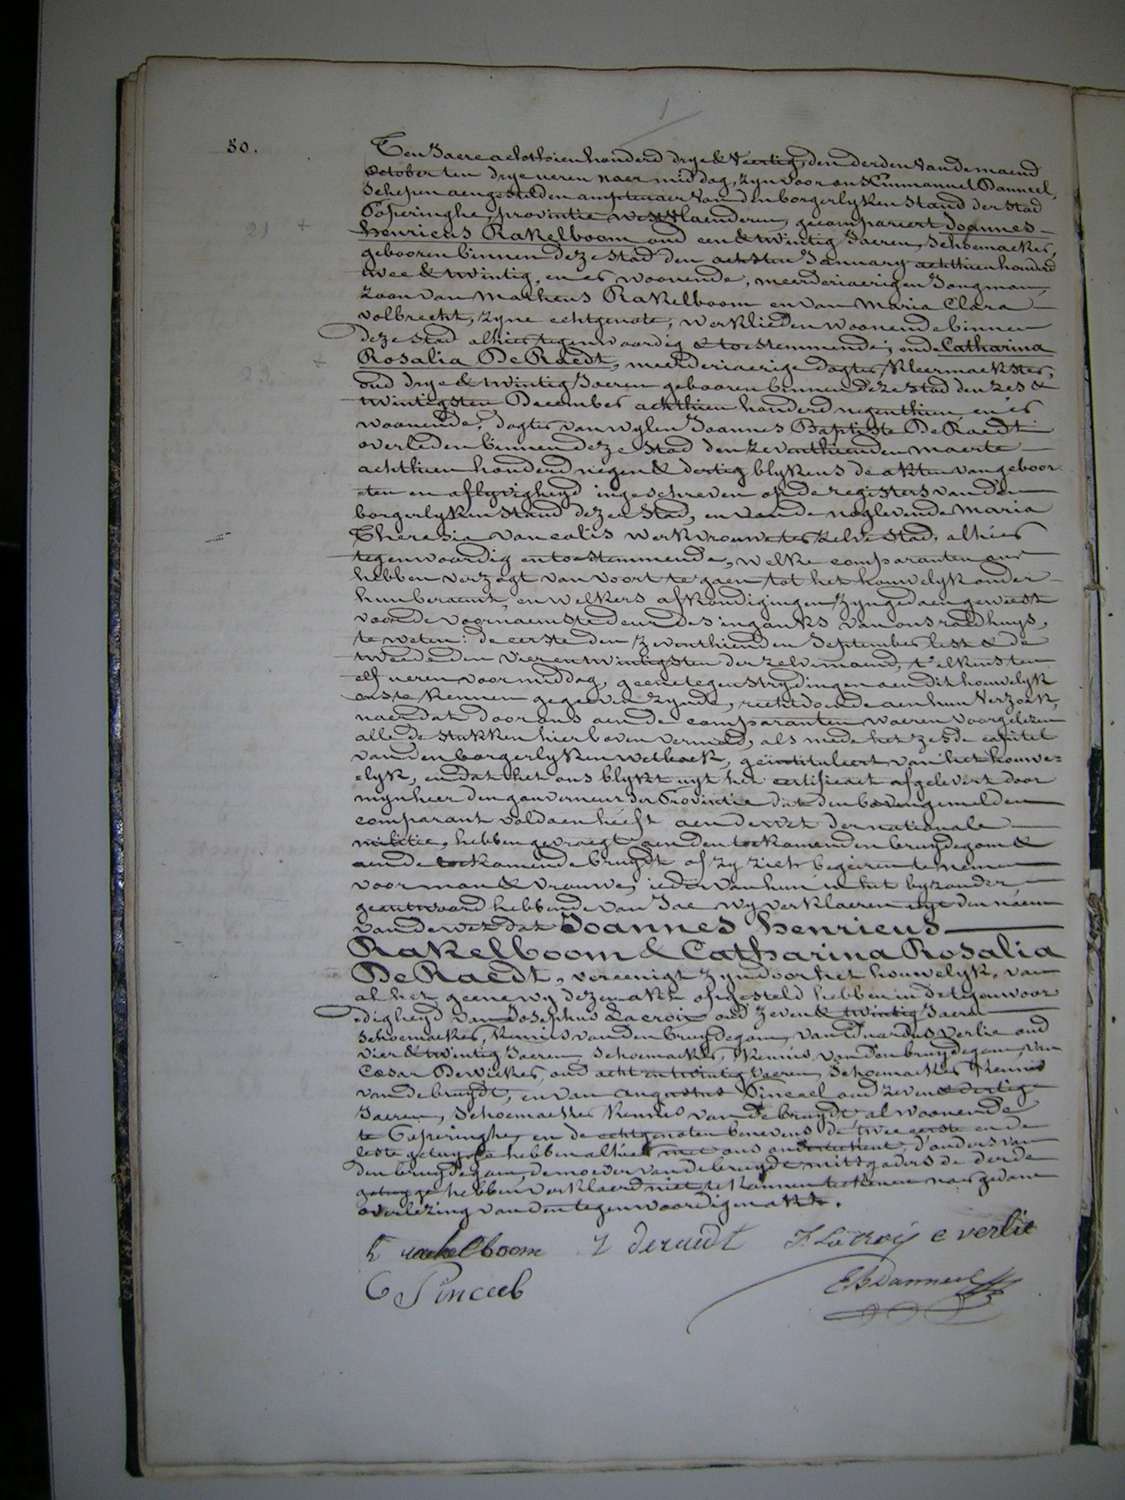 50.
Ten Jaere achthienhonderd drye & Veertig, den derden van de maend
October ten drye uren naer middag, zyn voor ons Emmanuel Danneel,
Schepen aengestelden amptenaer van den borgerlyken Stand der Stad
Poperinghe, provintie WestVlaenderen, gecompareert Joannes
henricus Rakelboom oud een & twintig Jaeren, Schoemaeker,
gebooren binnen deze Stad den achsten January achthienhonderd
twee & twintig, en er woonende, meerderjaerigen Jongman,
zoon van Matheus Rakelboom en van Maria Clara
volbrecht, zyne echtgenote, werklieden woonende binnen
deze Stad alhier tegenwoordig & toestemmende; ende Catharina
Rosalia De Raedt, meerderjaerige dogter, Kleermaekster,
oud drye & twintig Jaeren gebooren binnen deze Stad den zes &
twintigsten December achthien honderd negenthien, en er
woonende, dogter van wylen Joannes Baptiste De Raedt
overleden binnen deze Stad den zeventhienden maerte
achthien honderd negen & dertig blykens de akten van geboor
ten en aflyvigheyd ingeschreven op de registers van den
borgerlyken Stand dezer Stad, en van de noglevende Maria
Theresia van calis werkvrouw ter zelve Stad, alhier
tegenwoordig en toestemmende, welke comparanten ons
hebben verzogt van voort te gaen tot het houwelyk onder
hun beraemt, en welkers afkondigingen zyn gedaen geweest
voor de voornaemste deur des ingangs van ons raedhuys,
te weten: de eerste den zeventhienden September lest & de
tweede den vier en twintigsten der zelve maend, t'elkens ten
elf uren voormiddag, geene tegenstrydingen aen dit houwelyk
ons te kennen gegeven zynde, rechtdoende aen hun Verzoek,
naer dat door ons aen de comparanten waeren voorgelezen
alle de stukken hier boven vermeld, als mede het zesde capitel
van den borgerlyken wetboek, geintituleert van het houwe-
lyk, en dat het ons blykt uyt het certificaet afgelevert door
mynheer den gouverneur der Provintie dat den bovengemelden
comparant voldaen heeft aen de wet der nationale
militie, hebben gevraegt aen den toekomenden bruydegom &
aen de toekomende bruydt of zy zich begeiren te nemen
voor man & vrouwe, ieder van hun in het byzonder
geantwoord hebbende van Jae wy verklaeren uyt den naem
van de wet dat Joannes henricus
Rakelboom & Catharina Rosalia
De Raedt, vereenigt zyn door het houwelyk, van
al het geene wy dezen akt opgesteld hebben in de tegenwoor
digheyd van Josephus Lacroix oud zeven & twintig Jaeren
Schoemaeker, Kennis van den bruydegom, van Eduardus verlie oud
vier & twintig Jaeren, Schoemaeker, Kennis van den bruydegom, van
Cæsar De wicker, oud acht en twintig Jaeren, Schoemaeker Kennis
van de bruydt, en van Augustus Pinceel oud zeven & dertig
Jaeren, Schoemaeker Kennis van de bruydt al woonende
te Poperinghe, en de echtgenoten benevens de twee eerste en de
leste getuyge hebben alhier met ons onderteekent, d'ouders van
den bruydegom, de moeder van de bruydt mitsgaders de derde
getuyge hebben verklaerd niet te konnen teekenen naer gedaene
overlezing van den tegenwoordigen akt.
h rackelboom deraedt J Lacroix e verlie
Pinceel E. Danneel